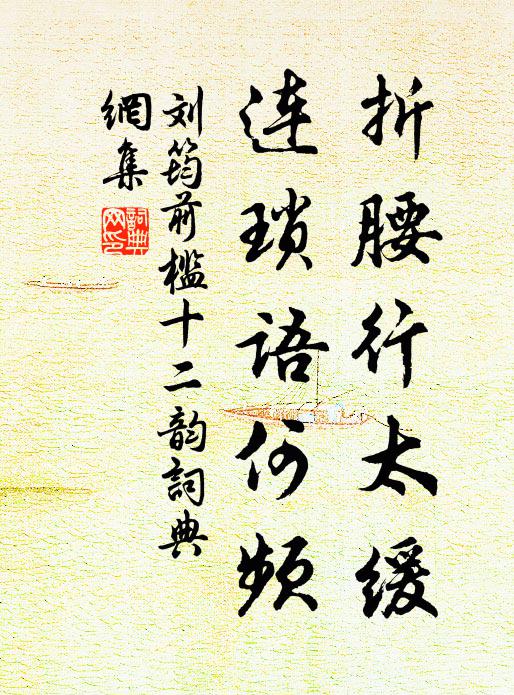 折腰行太缓
连琐语何频
刘筠前槛十二韵詞典
網集
詞典
网印